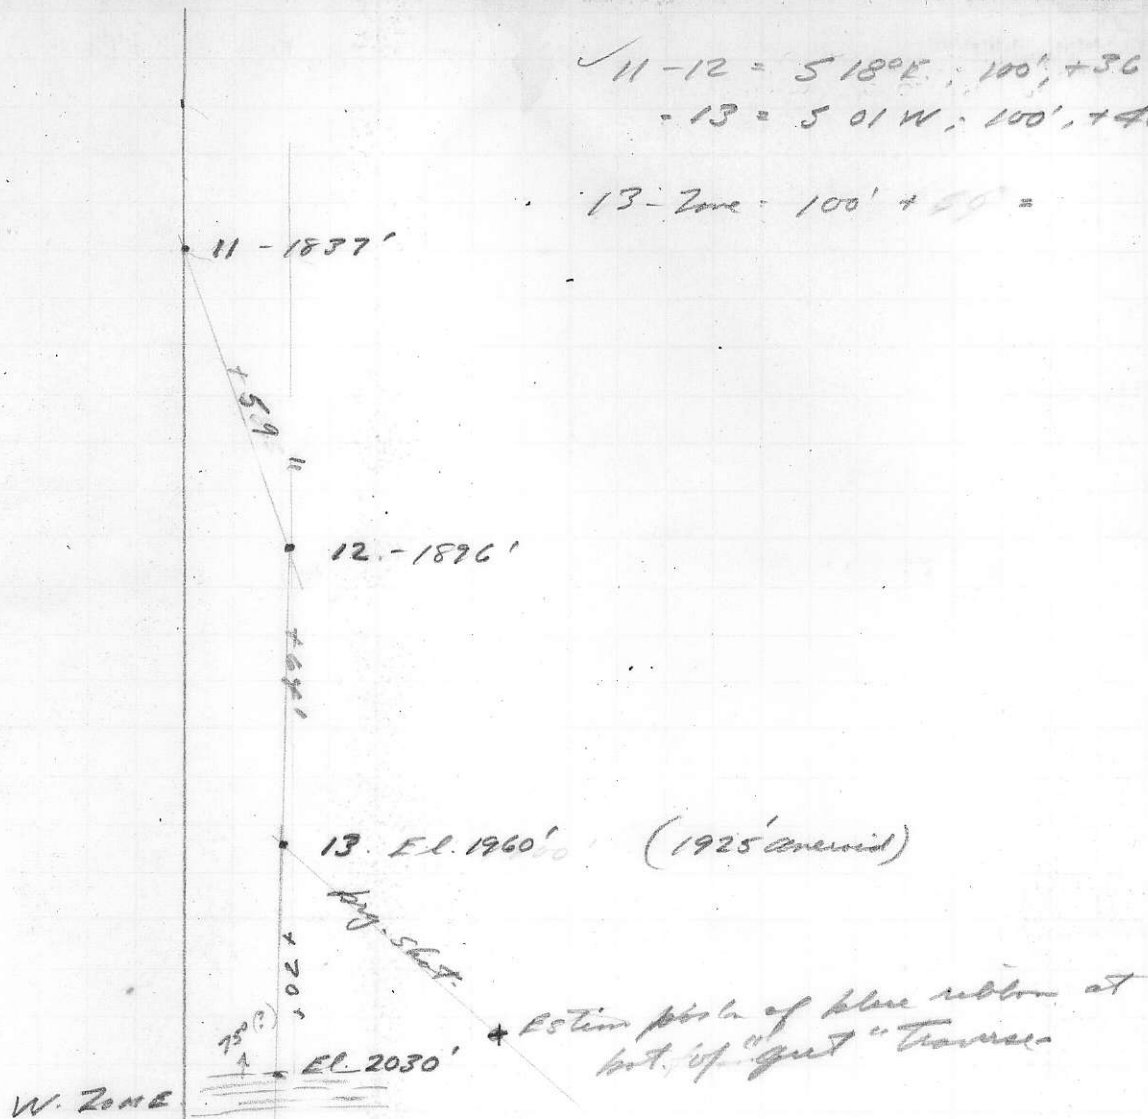 ✓ 11-12 = S 18° E ; 100', +36
- 13 = S 01 W ; 100', +4
13 - Zone = 100' + =
11 - 1837'
+59
11
12. - 1896'
+64'
13. El. 1960' (1925' aneroid)
brg. shot.
+70'
+ Estim pos'n of blue ribbon at
bot. of "gut" Traverse
75° (?)
El. 2030'
W. ZONE